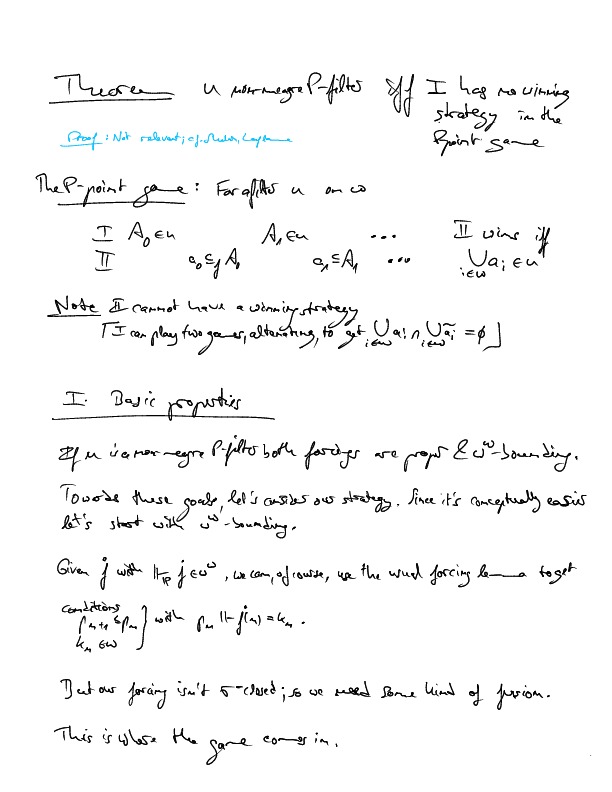 Theorem u nonmeagre P-filter iff I has no winning
strategy in the
Ppoint game
Proof: Not relevant; cf. Laflamme
The P-point game: For a filter u on ω
I A₀∈u A₁∈u ... II wins iff
II a₀⊆_f A₀ a₁⊆A₁ ... ⋃_{i∈ω} a_i ∈ u
Note II cannot have a winning strategy
⌈I can play two games, alternating, to get ⋃_{i∈ω} a_i ∩ ⋃_{i∈ω} ã_i = ∅⌋
I. Basic properties
If u is a nonmeagre P-filter both forcings are proper & ω^ω-bounding.
Towards these goals, let's consider our strategy. Since it's conceptually easier
let's start with ω^ω-bounding.
Given ḟ with ⊩_ℙ ḟ∈ω^ω, we can, of course, use the usual forcing lemma to get
conditions
p_{n+1}≤p_n } with p_n ⊩ ḟ(n)=k_n.
k_n∈ω
But our forcing isn't σ-closed; so we need some kind of fusion.
This is where the game comes in.